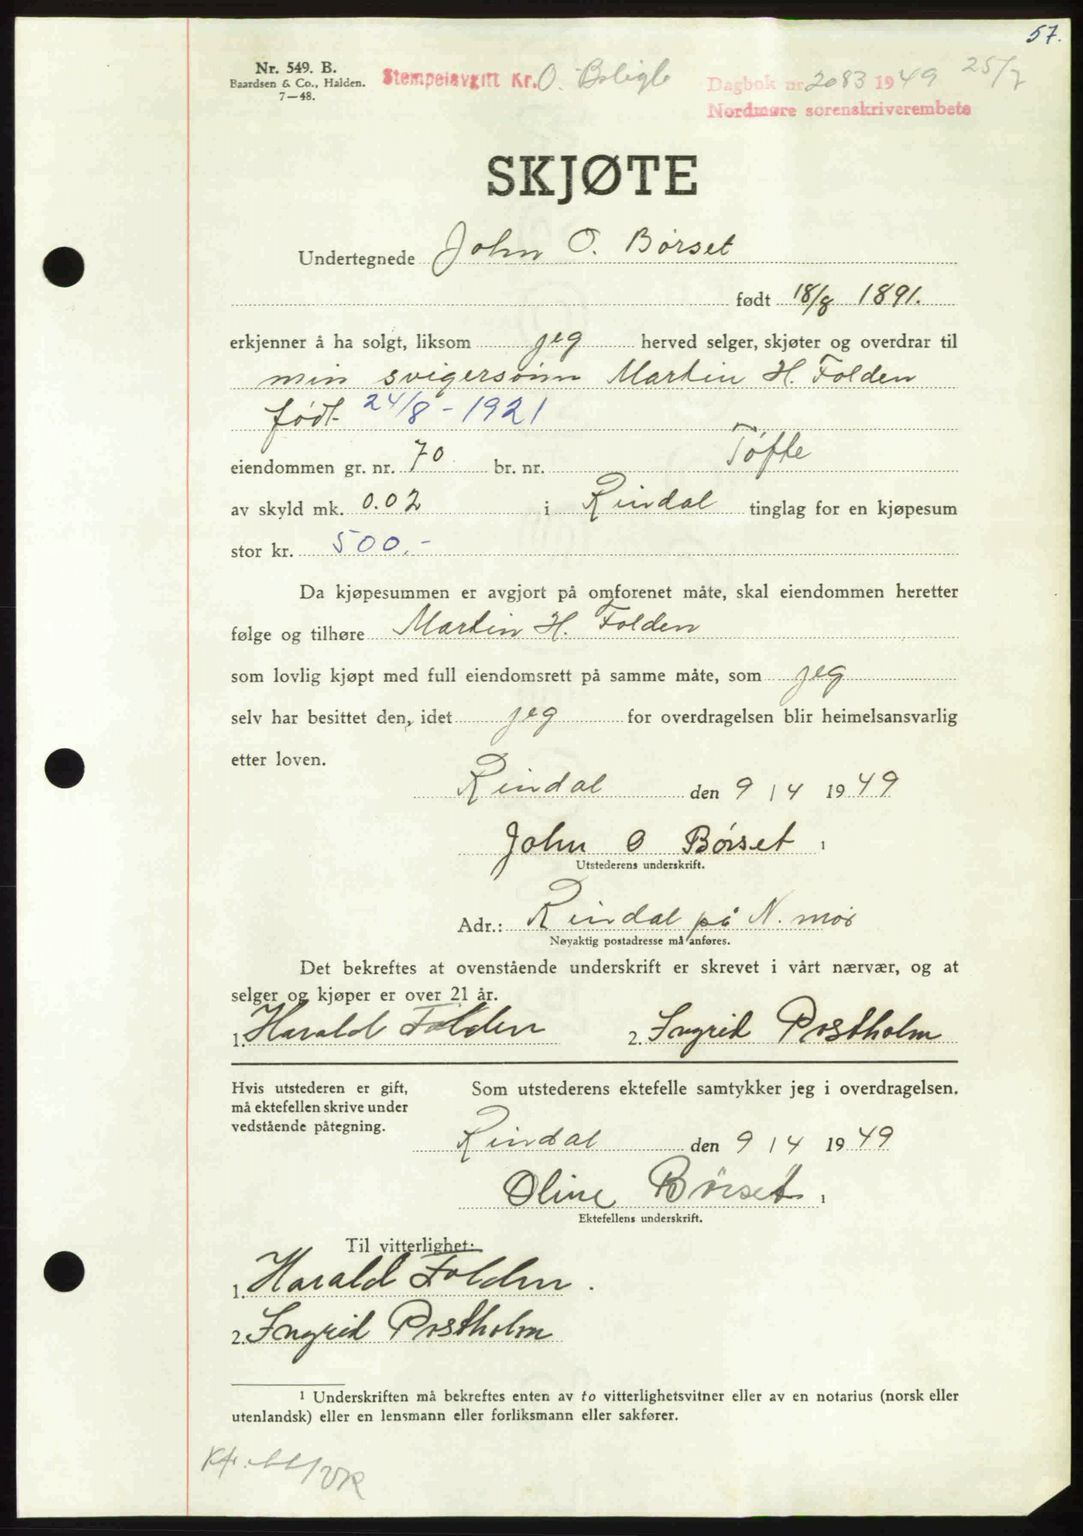 57.
Nr. 549. B.
Baardsen & Co., Halden.
7—48.
Stempelavgift Kr. 0. Boligl
Dagbok nr 2083 1949 25/7
Nordmøre sorenskriverembete
SKJØTE
Undertegnede John O. Børset
født 18/8 1891.
erkjenner å ha solgt, liksom jeg herved selger, skjøter og overdrar til
min svigersønn Martin H. Folden
født 24/8 - 1921
eiendommen gr. nr. 70 br. nr. Tøfte
av skyld mk. 0.02 i Rindal tinglag for en kjøpesum
stor kr. 500.-
Da kjøpesummen er avgjort på omforenet måte, skal eiendommen heretter
følge og tilhøre Martin H. Folden
som lovlig kjøpt med full eiendomsrett på samme måte, som jeg
selv har besittet den, idet jeg for overdragelsen blir heimelsansvarlig
etter loven.
Rindal den 9 / 4 1949
John O Børset 1
Utstederens underskrift.
Adr.: Rindal på N. mør
Nøyaktig postadresse må anføres.
Det bekreftes at ovenstående underskrift er skrevet i vårt nærvær, og at
selger og kjøper er over 21 år.
1. Harald Folden 2. Ingrid Postholm
Hvis utstederen er gift,
må ektefellen skrive under
vedstående påtegning.
Som utstederens ektefelle samtykker jeg i overdragelsen.
Rindal den 9 / 4 1949
Oline Børset 1
Ektefellens underskrift.
Til vitterlighet:
1. Harald Folden.
2. Ingrid Postholm
1 Underskriften må bekreftes enten av to vitterlighetsvitner eller av en notarius (norsk eller
utenlandsk) eller en lensmann eller forliksmann eller sakfører.